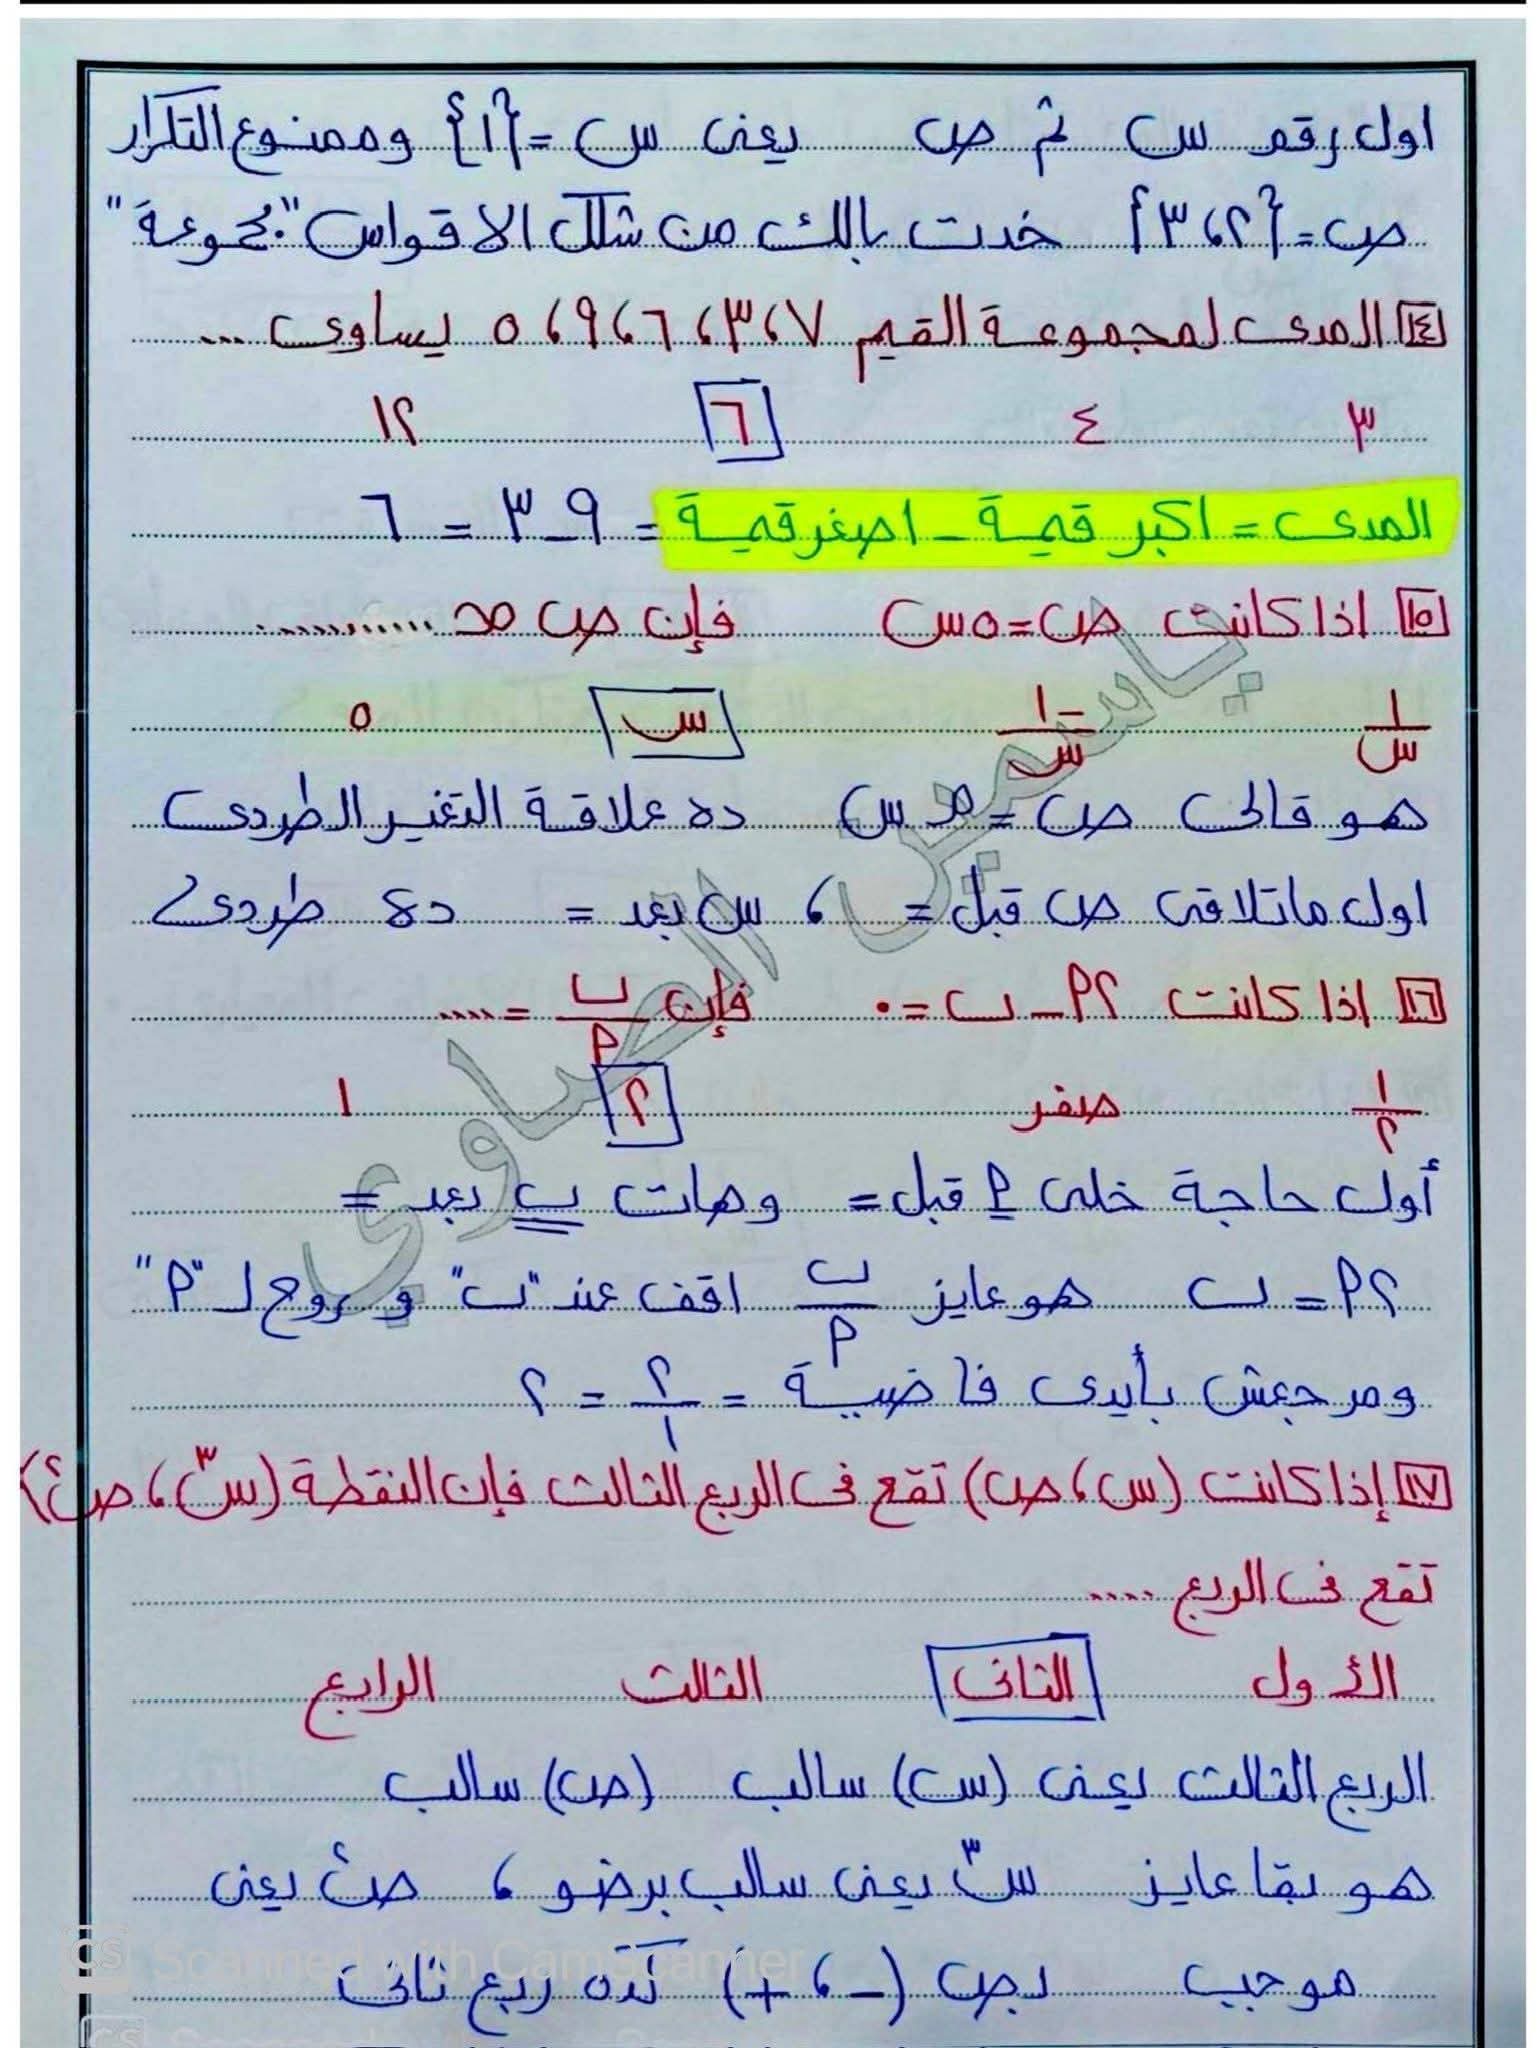 اول رقم س ثم ص يعنى س = {١} وممنوع التكرار
ص = {٢، ٣} خدت بالك من شكل الاقواس "مجموعة"
١٤ المدى لمجموعة القيم ٧، ٣، ٦، ٩، ٥ يساوى ...
٣ ٤ ٦ ١٢
المدى = اكبر قيمة - اصغر قيمة = ٩ - ٣ = ٦
١٥ اذا كانت ص = ٥ س فإن ص ∝ ............
١/س -١/س س ٥
هو قالى ص = م س ده علاقة التغير الطردى
اول ماتلاقى ص قبل = ، س بعد = ده طردى
١٦ اذا كانت ٢ﺃ - ب = ٠ فإن ب/ﺃ = ....
١/٢ صفر ٢ ١
أول حاجة خلى ﺃ قبل = وهات ب بعد =
٢ﺃ = ب هو عايز ب/ﺃ اقف عند "ب" و روح لـ "ﺃ"
ومرجعش بأيدى فاضية = ٢/١ = ٢
١٧ إذا كانت (س، ص) تقع فى الربع الثالث فإن النقطة (س٣، ص٤)
تقع فى الربع ....
الأول الثانى الثالث الرابع
الربع الثالث يعنى (س) سالب (ص) سالب
هو بقا عايز س٣ يعنى سالب برضو ، ص٤ يعنى
موجب بص (-، +) كده ربع تانى
ياسمين الصاوى
CS Scanned with CamScanner